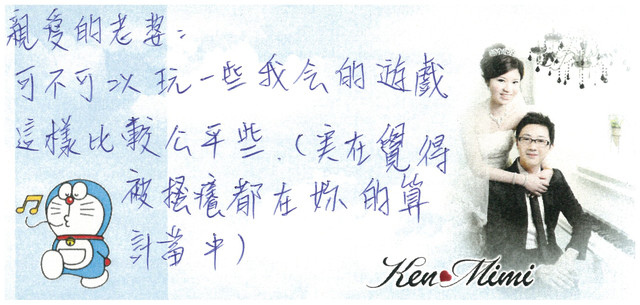 親愛的老婆:
可不可以玩一些我会的遊戲
這樣比較公平些.(实在覺得
被搔癢都在妳的算
計當中)
Ken Mimi